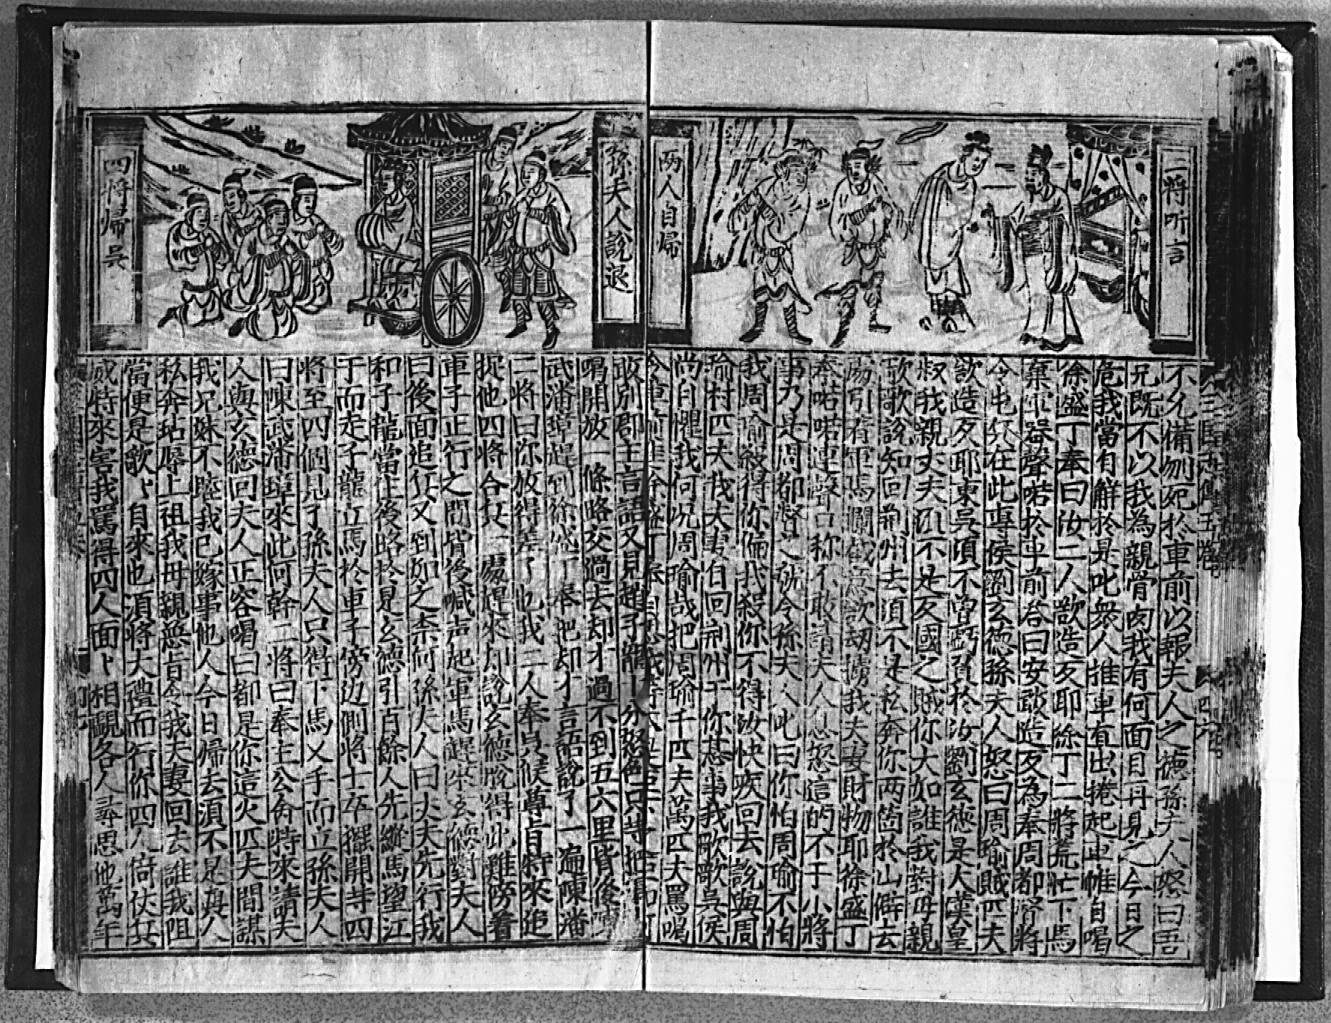 二將听言
两人自歸
不允備刎死於車前以報夫人之德孫夫人怒曰吾
兄既不以我為親骨肉我有何面目再見之今日之
危我當自解於是叱衆人推車直出捲起車帷自喝
徐盛丁奉曰汝二人欲造反耶徐丁二將荒忙下馬
棄軍器聲喏於車前答曰安敢造反為奉周都督將
令屯兵在此專候劉玄德孫夫人怒曰周瑜賊匹夫
欲造反耶東吳須不曾虧負於汝劉玄德是大漢皇
叔我親丈夫又不是反國之賊你大如誰我對母親
歌歌說知回荆州去須不是私奔你两箇於山僻去
處引着軍馬攔截意欲刼擄我夫妻財物耶徐盛丁
奉喏喏連聲口称不敢請夫人息怒這的不干小將
事乃是周都督之號令孫夫人叱曰你怕周瑜不怕
我周瑜殺得你偏我殺你不得汝快疾回去說與周
瑜村匹夫我夫妻自回荆州干你甚事我歌歌吳侯
尚自懼我何况周瑜哉把周瑜千匹夫萬匹夫罵喝
孫夫人說退
四將歸吳
敢别郡主言語又見趙子龍十分怒色只得把軍
喝開放一條路交過去却才過不到五六里背後陳
武潘璋趕到徐盛丁奉把却才言語說了一遍陳潘
二將曰你放得差了也我二人奉吳候尊旨特來追
捉他四將合兵一處趕來却說玄德脫得此難傍着
車子正行之間背後喊声起軍馬趕來玄德對夫人
曰後面追兵又到如之柰何孫夫人曰丈夫先行我
和子龍當住後路於是玄德引百餘人先縱馬望江
于而走子龍立馬於車子傍边側將士卒擺開寺四
將至四個見了孫夫人只得下馬叉手而立孫夫人
曰陳武潘璋來此何幹二將曰奉主公命特來請夫
人與玄德回夫人正容喝曰都是你這火匹夫間諜
我兄妹不睦我已嫁事他人今日歸去須不是與人
私奔玷辱上祖我母親慈旨令我夫妻回去誰我阻
當便是歌歌自來也須將大禮而行你四人倚仗兵
威特來害我罵得四人面面相覷各人尋思他萬年